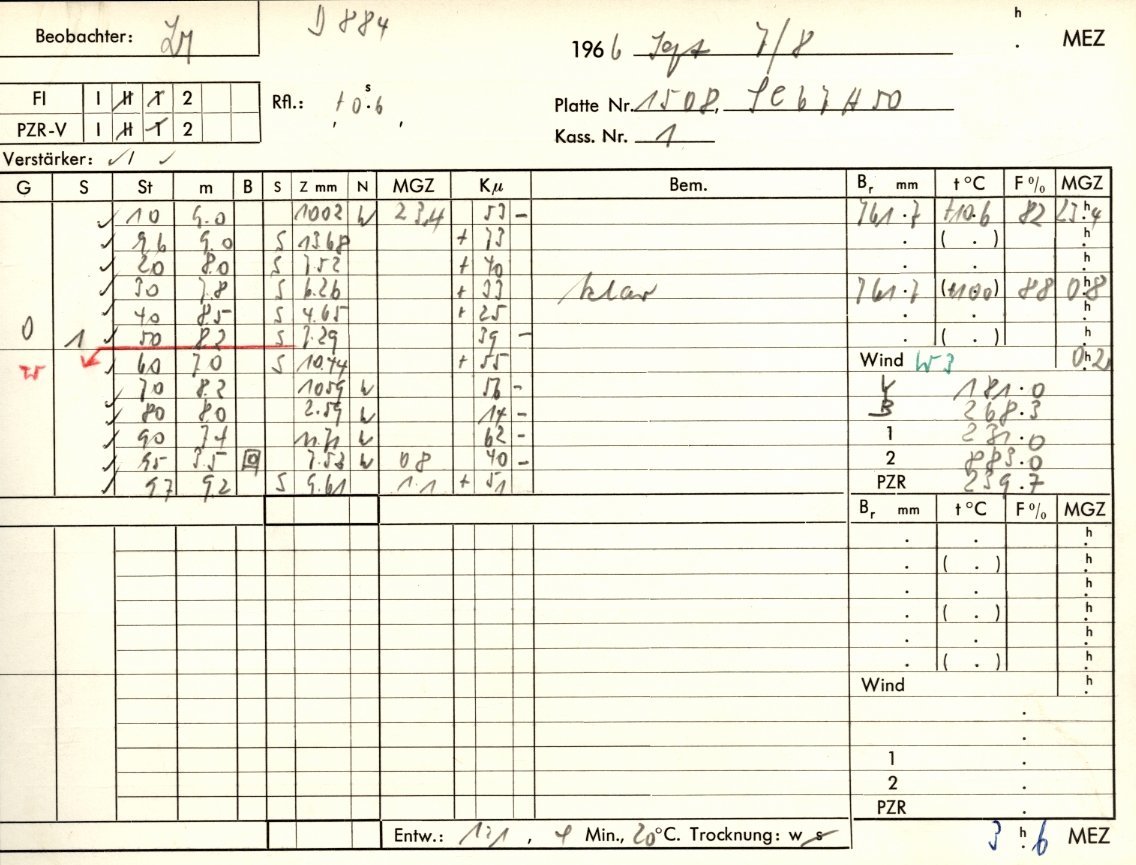 D 884
h
Beobachter:
1966 Sept 7/8 . MEZ
FI I H T 2
Rfl.: +0.6 s
Platte Nr. 1508,
PZR-V I H T 2
Kass. Nr. 1
Verstärker: ✓1 ✓
G S St m B S Z mm N MGZ Kμ Bem. Br mm t°C F% MGZ
✓ 10 9.0 1002 W 23.4 53 – 761.7 +10.6 82 23.4 h
✓ 96 9.0 S 1368 + 73 . ( . ) h
✓ 20 8.0 S 7.52 + 40 . . h
✓ 30 7.8 S 6.26 + 33 klar 761.7 88 0.8 h
✓ 40 8.5 S 4.65 + 25 . . h
0 1 ✓ 50 8.2 S 7.29 39 – . ( . ) h
✓ 60 7.0 S 10.44 + 55 Wind W 3 0.2 h
✓ 70 8.2 1059 W 56 – 181.0
✓ 80 8.0 2.59 W 14 – B 268.3
✓ 90 7.4 11.71 W 62 – 1 231.0
✓ 95 3.5 7.53 W 0.8 40 – 2 883.0
✓ 97 9.2 S 9.61 1.1 + 51 PZR 239.7
Br mm t°C F% MGZ
. . h
. ( . ) h
. . h
. ( . ) h
. . h
. ( . ) h
Wind h
.
.
1 .
2 .
PZR .
Entw.: 1:1, 4 Min., 20°C. Trocknung: w s 3 h . 6 MEZ